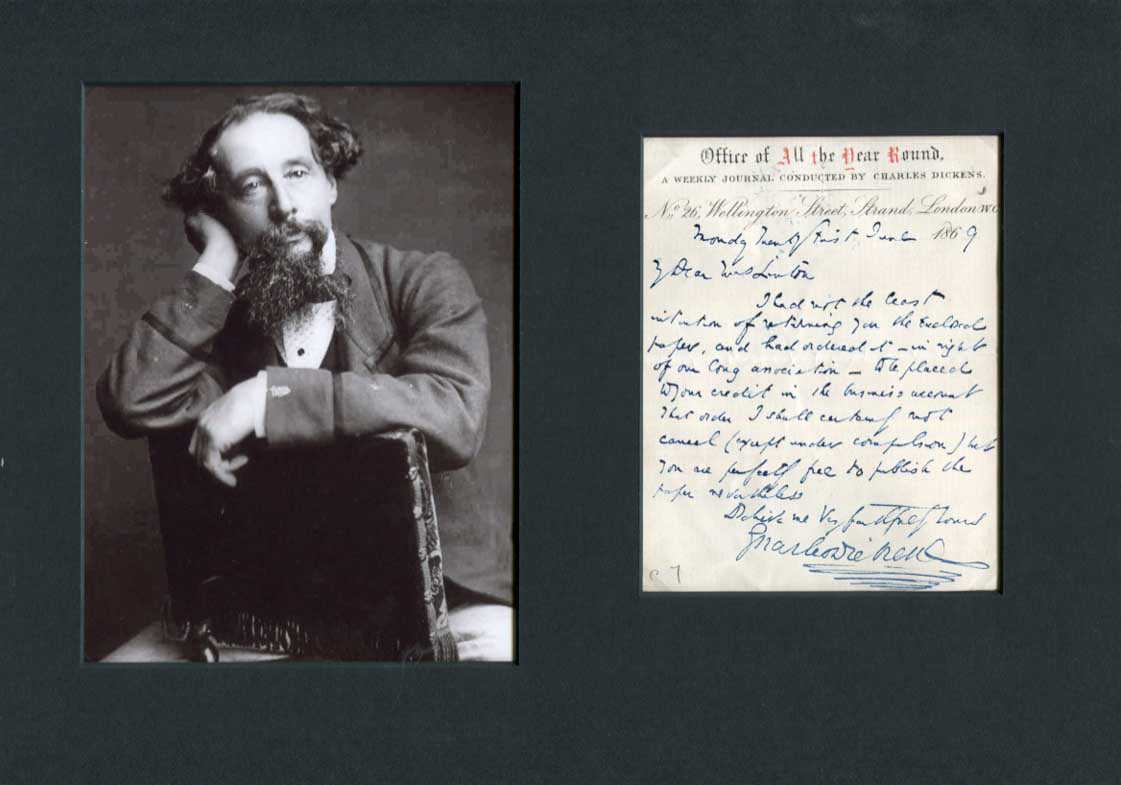 Office of All the Year Round,
A WEEKLY JOURNAL CONDUCTED BY CHARLES DICKENS.
No. 26, Wellington Street, Strand, London W.C.
Monday Twenty First June 1869
My Dear Mrs Linton
I had not the least
intention of returning you the enclosed
paper, and had ordered it – in right
of our long association – to be placed
to your credit in the business account
That order I shall certainly not
cancel (except under compulsion) but
you are perfectly free to publish the
paper nevertheless
Believe me Very faithfully Yours
Charles Dickens